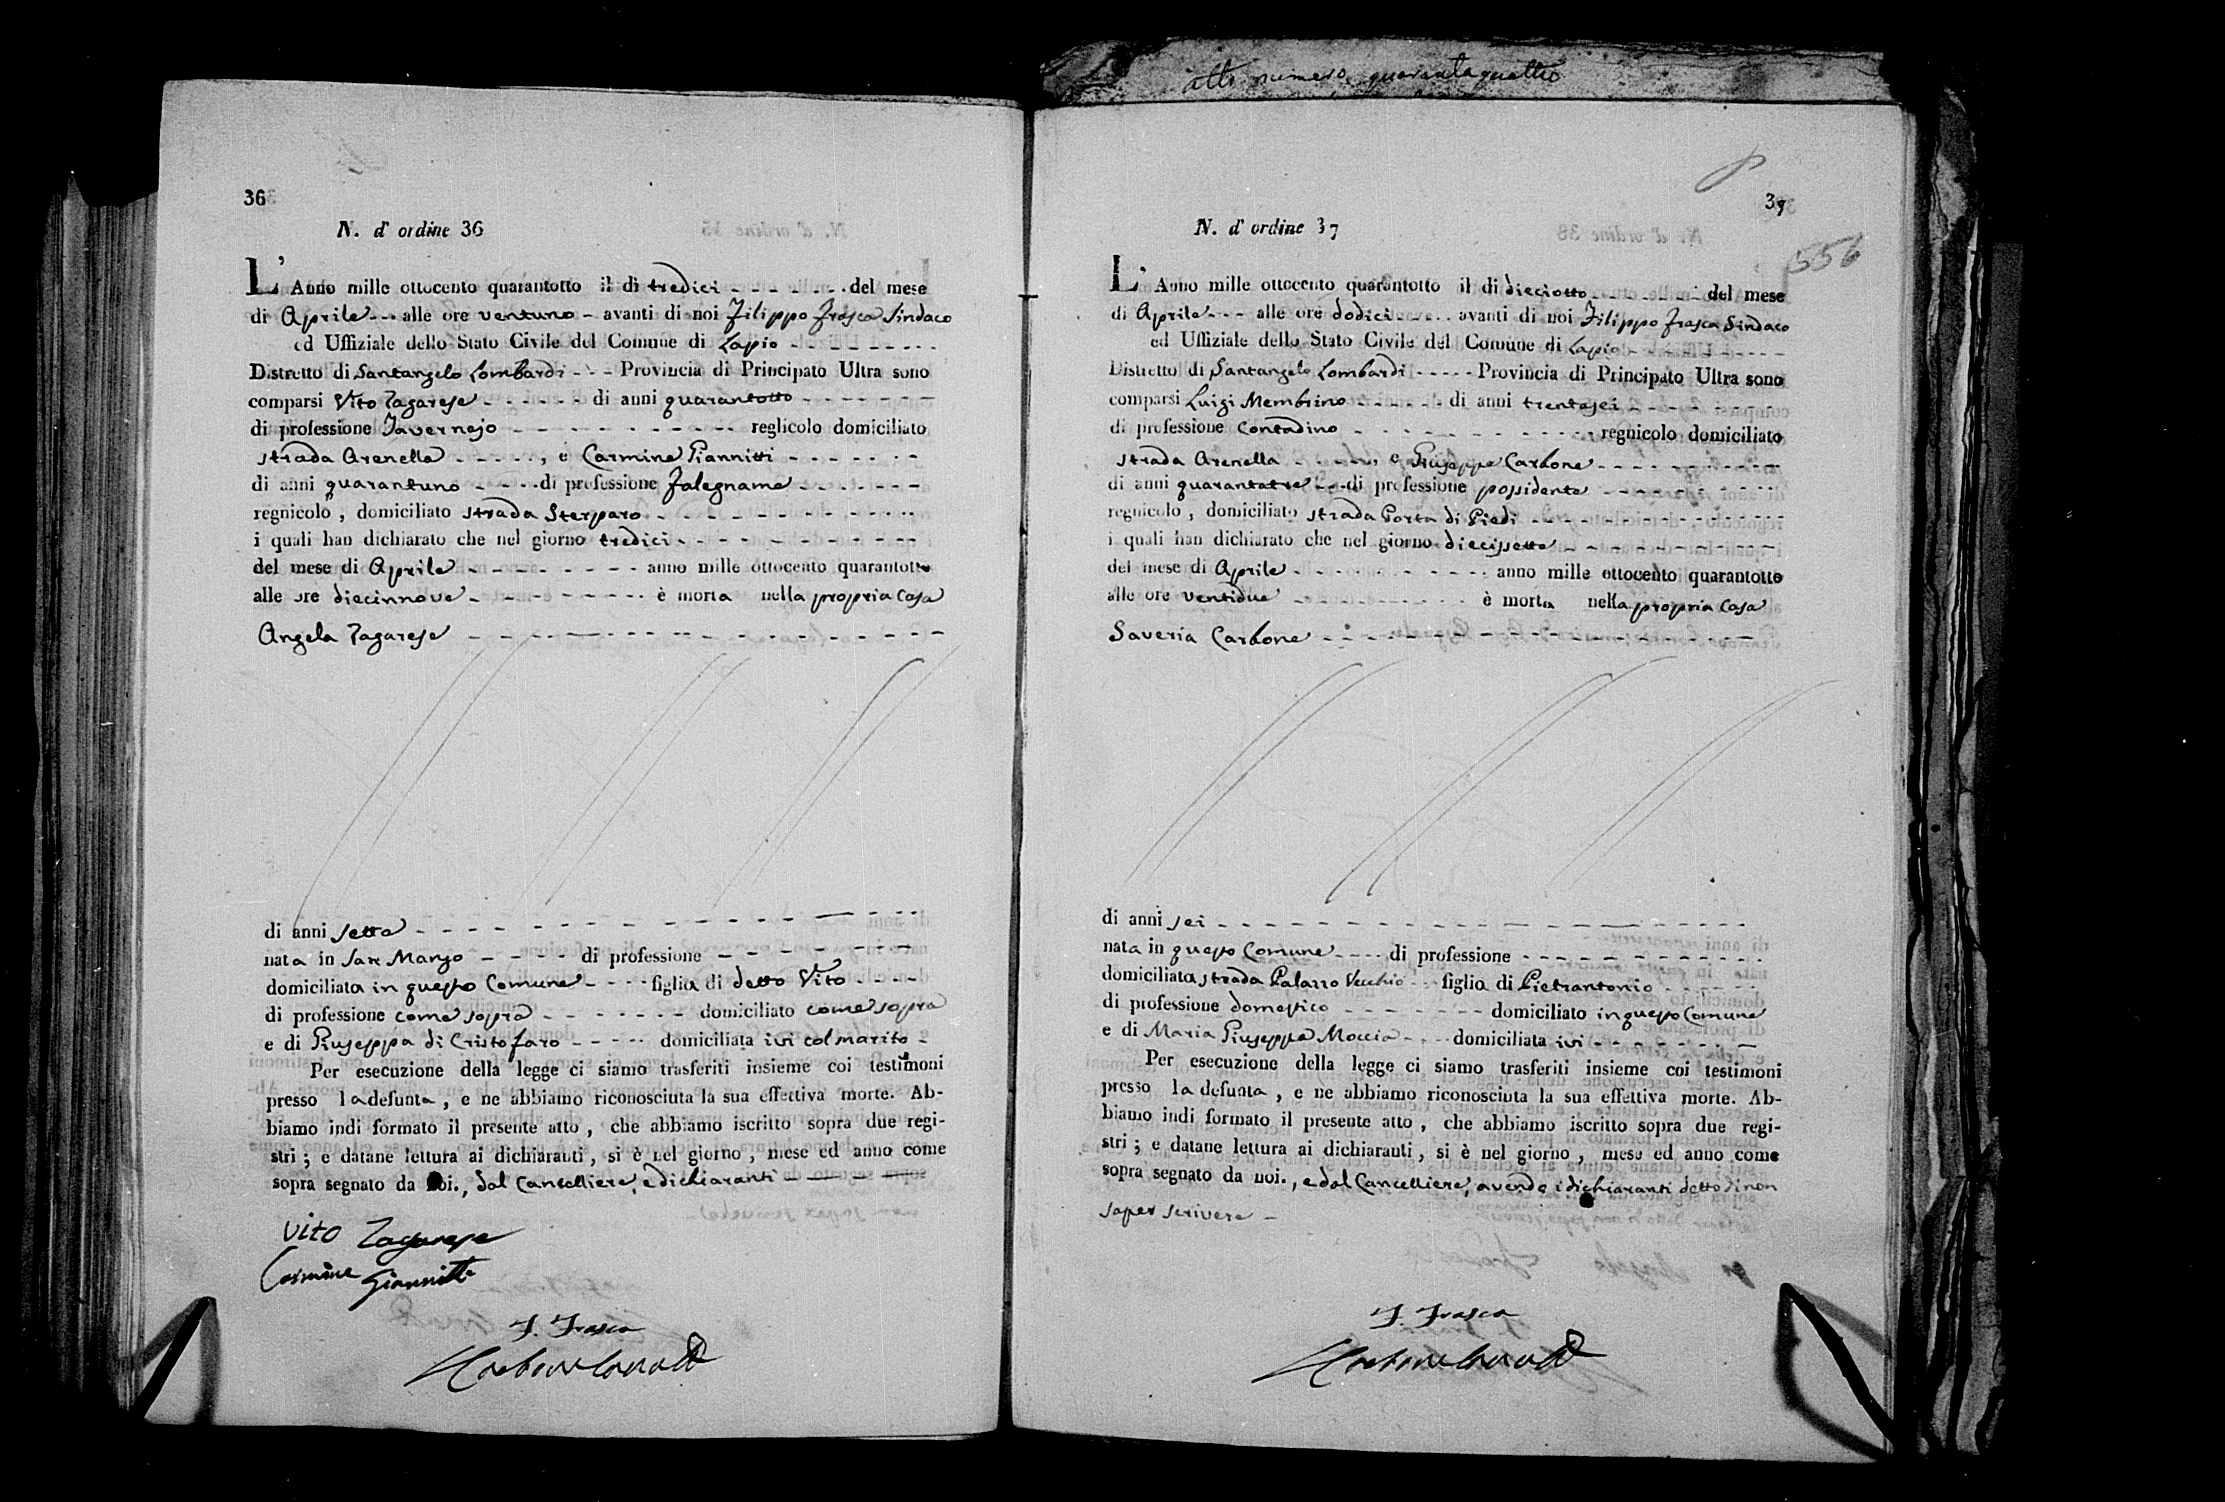 36
N. d' ordine 36
L' Anno mille ottocento quarantotto il di tredici del mese
di Aprile alle ore ventuno avanti di noi Filippo Frasca Sindaco
ed Uffiziale dello Stato Civile del Comune di Lapio
Distretto di Santangelo Lombardi Provincia di Principato Ultra sono
comparsi Vito Zagarese di anni quarantotto
di professione Tavernajo reglicolo domiciliato
strada Arenella , e Carmine Giannitti
di anni quarantuno di professione Falegname
regnicolo , domiciliato strada Sterparo
i quali han dichiarato che nel giorno tredici
del mese di Aprile anno mille ottocento quarantotto
alle ore diecinnove è morta nella propria Casa
Angela Zagarese
di anni sette
nata in San Mango di professione
domiciliata in questo Comune figlia di detto Vito
di professione come sopra domiciliato come sopra
e di Giuseppa di Cristofaro domiciliata ivi col marito
Per esecuzione della legge ci siamo trasferiti insieme coi testimoni
presso la defunta , e ne abbiamo riconosciuta la sua effettiva morte. Ab-
biamo indi formato il presente atto , che abbiamo iscritto sopra due regi-
stri ; e datane lettura ai dichiaranti , si è nel giorno , mese ed anno come
sopra segnato da noi., dal Cancelliere, e dichiaranti
Vito Zagarese
Carmine Giannitti
F. Frasca
atto numero quarantaquattro
37
556
N. d' ordine 37
L' Anno mille ottocento quarantotto il di dieciotto del mese
di Aprile alle ore dodici avanti di noi Filippo Frasca Sindaco
ed Uffiziale dello Stato Civile del Comune di Lapio
Distretto di Santangelo Lombardi Provincia di Principato Ultra sono
comparsi Luigi Membrino di anni trentasei
di professione Contadino regnicolo domiciliato
strada Arenella , e Giuseppe Carbone
di anni quarantatre di professione possidente
regnicolo , domiciliato strada Porta di Piedi
i quali han dichiarato che nel giorno diecisette
del mese di Aprile anno mille ottocento quarantotto
alle ore ventidue è morta nella propria Casa
Saveria Carbone
di anni sei
nata in questo Comune di professione
domiciliata strada Palazzo Vecchio figlia di Pietrantonio
di professione domestico domiciliato in questo Comune
e di Maria Giuseppa Moccia domiciliata ivi
Per esecuzione della legge ci siamo trasferiti insieme coi testimoni
presso la defunta , e ne abbiamo riconosciuta la sua effettiva morte. Ab-
biamo indi formato il presente atto , che abbiamo iscritto sopra due regi-
stri ; e datane lettura ai dichiaranti , si è nel giorno , mese ed anno come
sopra segnato da noi., e dal Cancelliere, avendo i dichiaranti detto di non
saper scrivere
F. Frasca